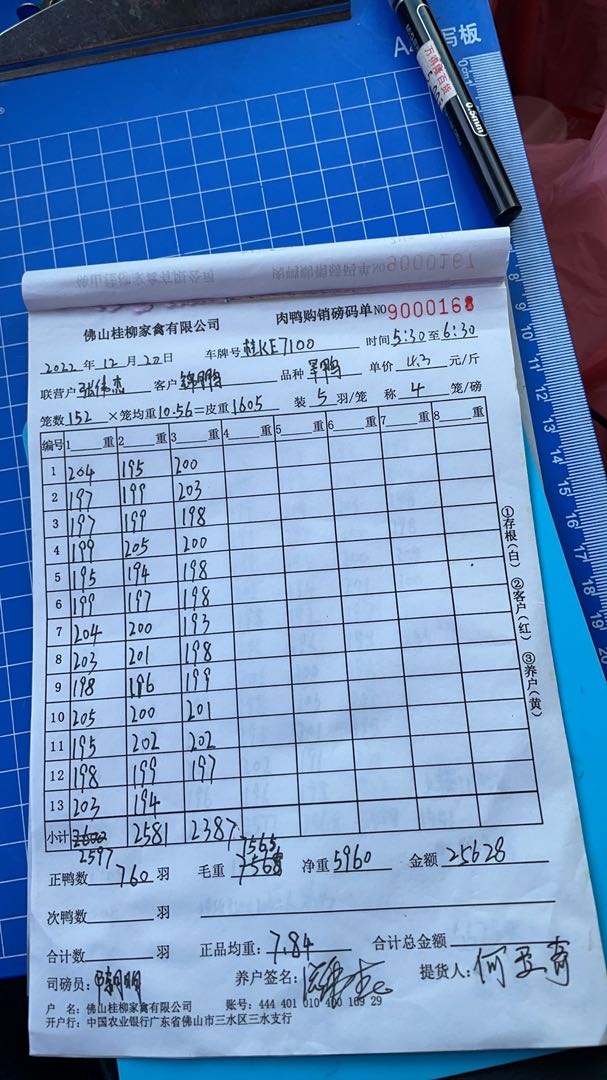 A 写板
万信隆百货
0.5mm
8 9 10 11 12 13 14 15 16 17 18 19 20
佛山桂柳家禽有限公司 肉鸭购销磅码单NO 9000167
佛山桂柳家禽有限公司 肉鸭购销磅码单NO 9000168
2022年12月20日 车牌号 桂KE7100 时间 5:30至6:30
联营户 张伟杰 客户 品种 单价 4.3 元/斤
笼数 152 ×笼均重 10.56 =皮重 1605 装 5 羽/笼 称 4 笼/磅
编号 1 重 2 重 3 重 4 重 5 重 6 重 7 重 8 重
1 204 195 200
2 197 199 203
3 197 199 198
4 199 205 200
5 195 194 198
6 199 197 198
7 204 200 193
8 203 201 198
9 198 196 199
10 205 200 201
11 195 202 202
12 198 199 197
13 203 194
小计 2602 2581 2387
2597 7565
正鸭数 760 羽 毛重 7568 净重 5960 金额 25628
次鸭数 羽
合计数 羽 正品均重: 7.84 合计总金额
司磅员: 养户签名: 提货人: 何
户 名: 佛山桂柳家禽有限公司 账号: 444 401 010 400 189 29
开户行: 中国农业银行广东省佛山市三水区三水支行
①存根(白) ②客户(红) ③养户(黄)